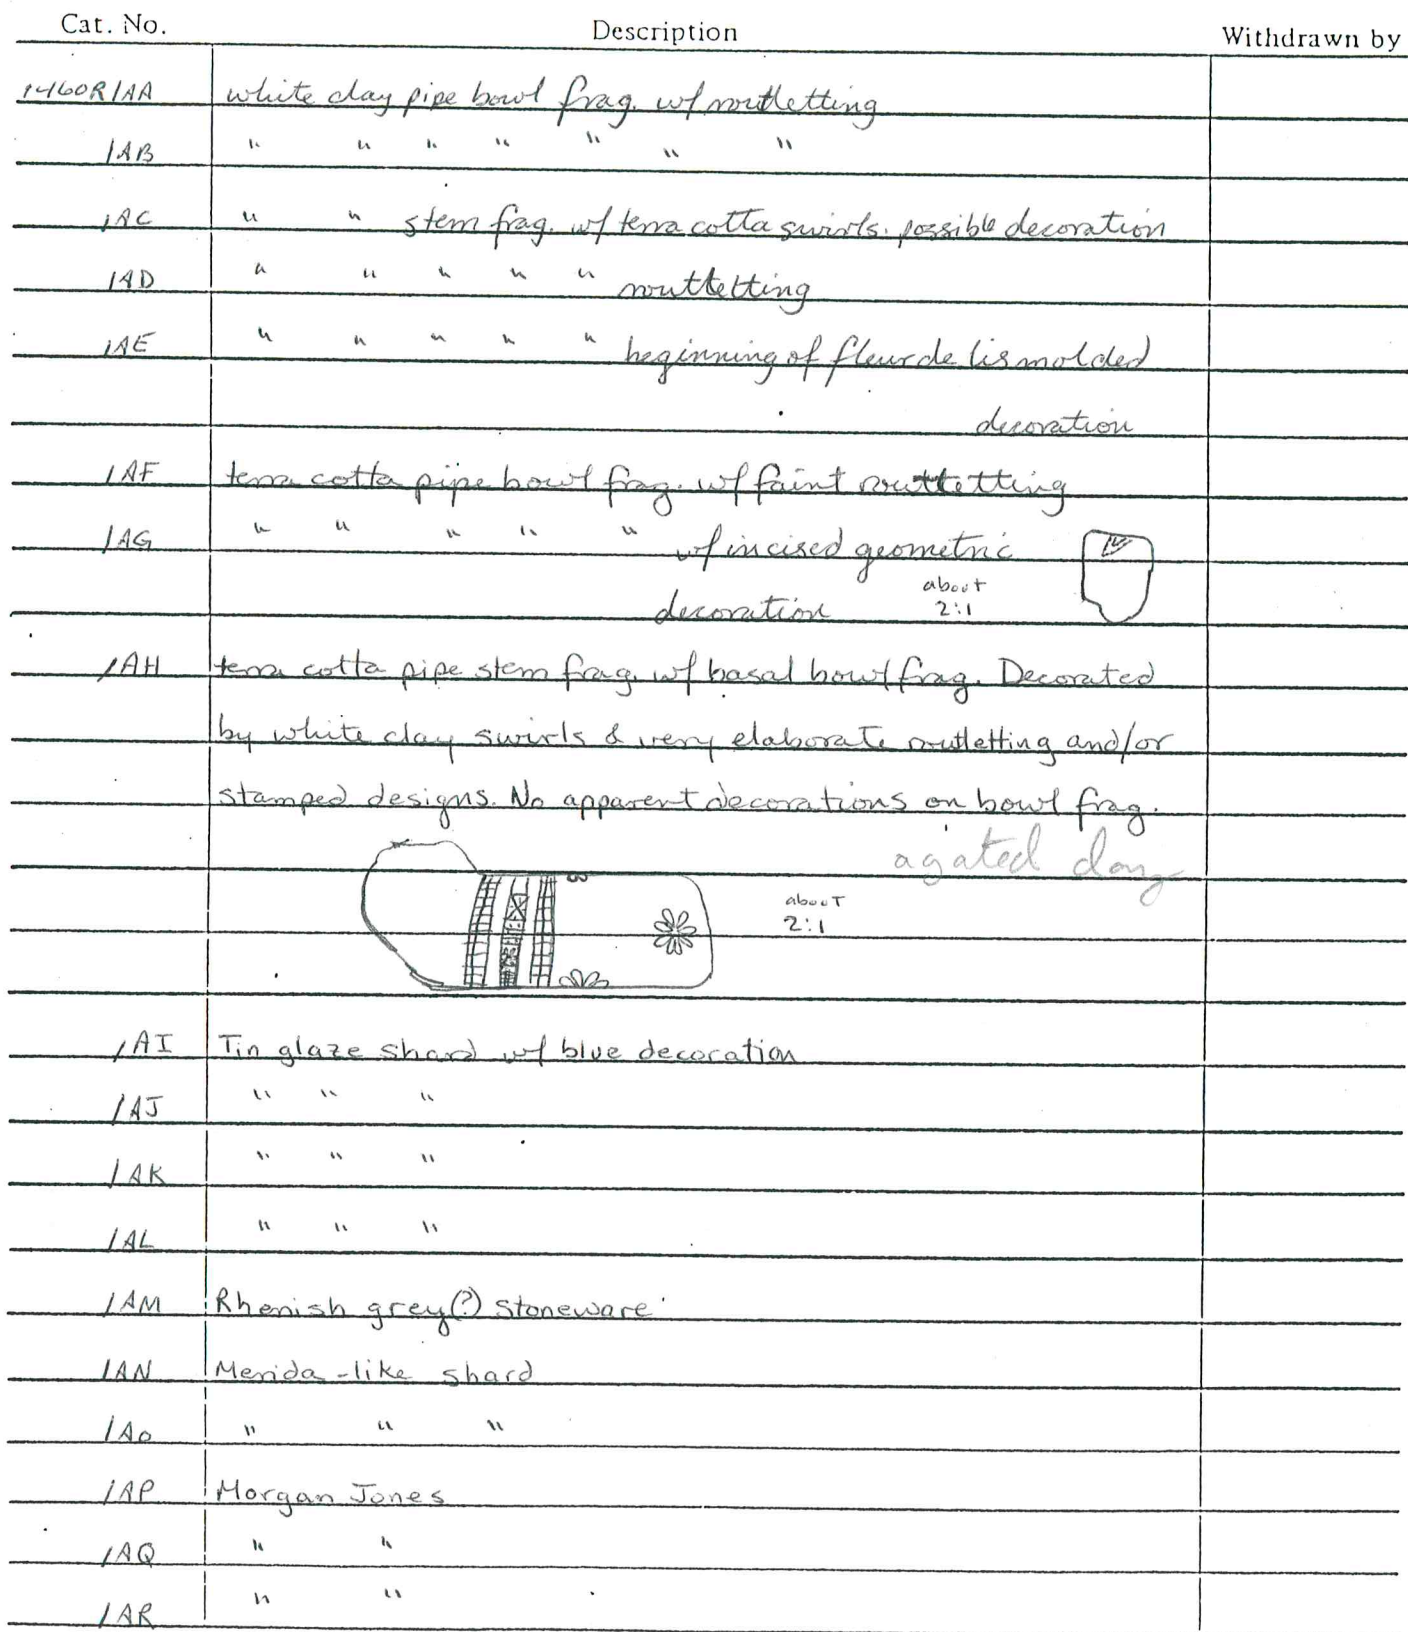 Cat. No. Description Withdrawn by
1460R/AA white clay pipe bowl frag. w/ roulletting
/AB " " " " " " "
/AC " " stem frag. w/ terra cotta swirls. possible decoration
/AD " " " " " roulletting
/AE " " " " " beginning of fleur de lis molded
decoration
/AF terra cotta pipe bowl frag. w/ faint roulletting
/AG " " " " " w/ incised geometric
decoration about
2:1
/AH terra cotta pipe stem frag. w/ basal bowl frag. Decorated
by white clay swirls & very elaborate roulletting and/or
stamped designs. No apparent decorations on bowl frag.
agated clay
about
2:1
/AI Tin glaze shard w/ blue decoration
/AJ " " "
/AK " " "
/AL " " "
/AM Rhenish grey(?) stoneware
/AN Merida-like shard
/AO " " "
/AP Morgan Jones
/AQ " "
/AR " "